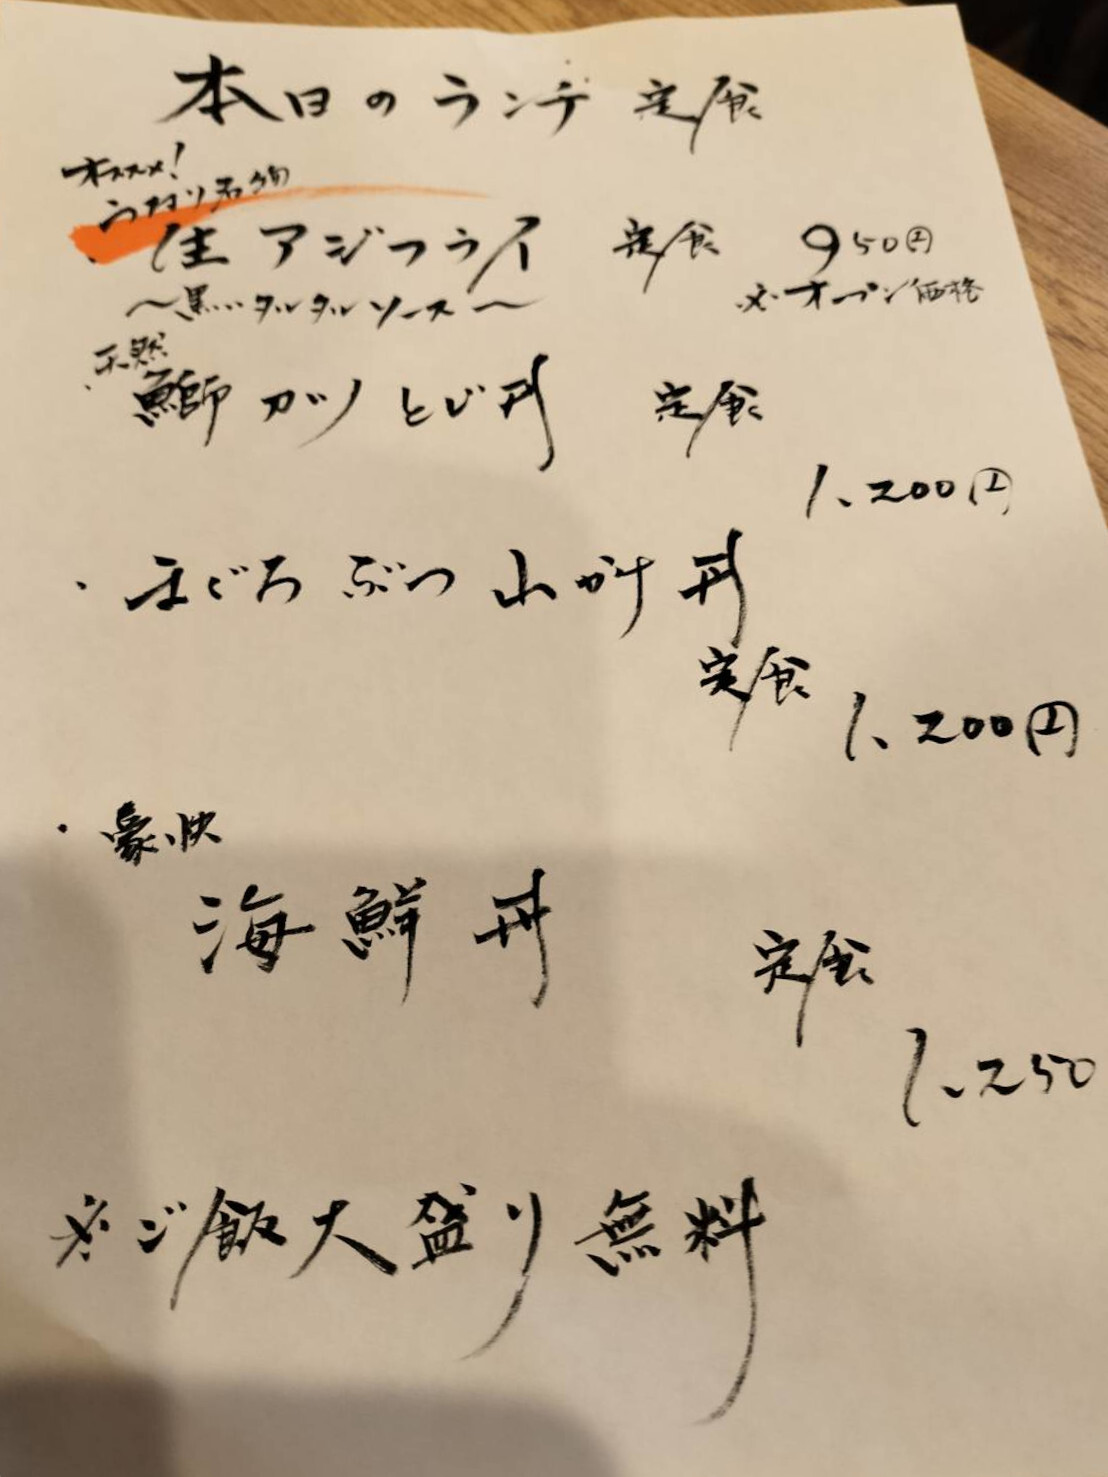 本日のランチ 定食
オススメ!
名物
・ 生アジフライ 定食 950円
～黒タルタルソース～ ※オープン価格
天然
・ 鰤カツとじ丼 定食
1,200円
・まぐろぶつ山かけ丼
定食
1,200円
・豪快
海鮮丼 定食
1,250
※ご飯大盛り無料